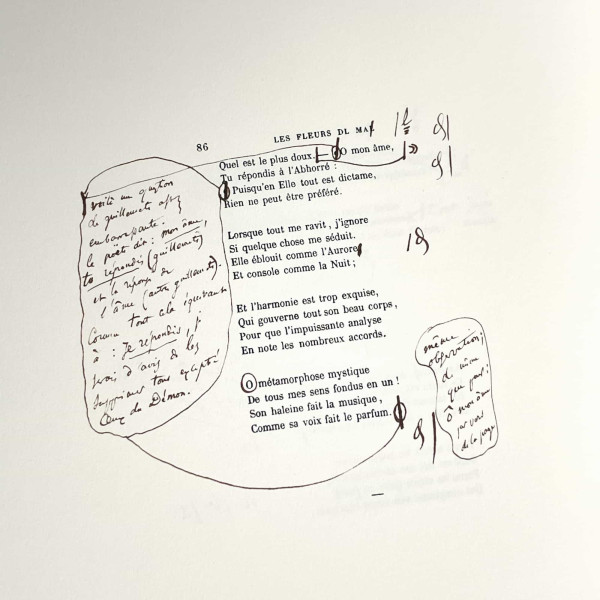 86
LES FLEURS DL MAL
Quel est le plus doux. — O mon âme,
Tu répondis à l'Abhorré :
Puisqu'en Elle tout est dictame,
Rien ne peut être préféré.
Lorsque tout me ravit, j'ignore
Si quelque chose me séduit.
Elle éblouit comme l'Aurore
Et console comme la Nuit ;
Et l'harmonie est trop exquise,
Qui gouverne tout son beau corps,
Pour que l'impuissante analyse
En note les nombreux accords.
O métamorphose mystique
De tous mes sens fondus en un !
Son haleine fait la musique,
Comme sa voix fait le parfum.
voilà une question
de guillemets
embarrassante.
le poète dit : mon âme,
tu répondis (guillemets)
et la réponse de
l'âme (autres guillemets).
tout cela équivaut
à : Je répondis,
serais d'avis de les
supprimer tous excepté
Ceux du Démon.
même
observation ;
de même
que pour :
Ô mon âme
au vers
de la page